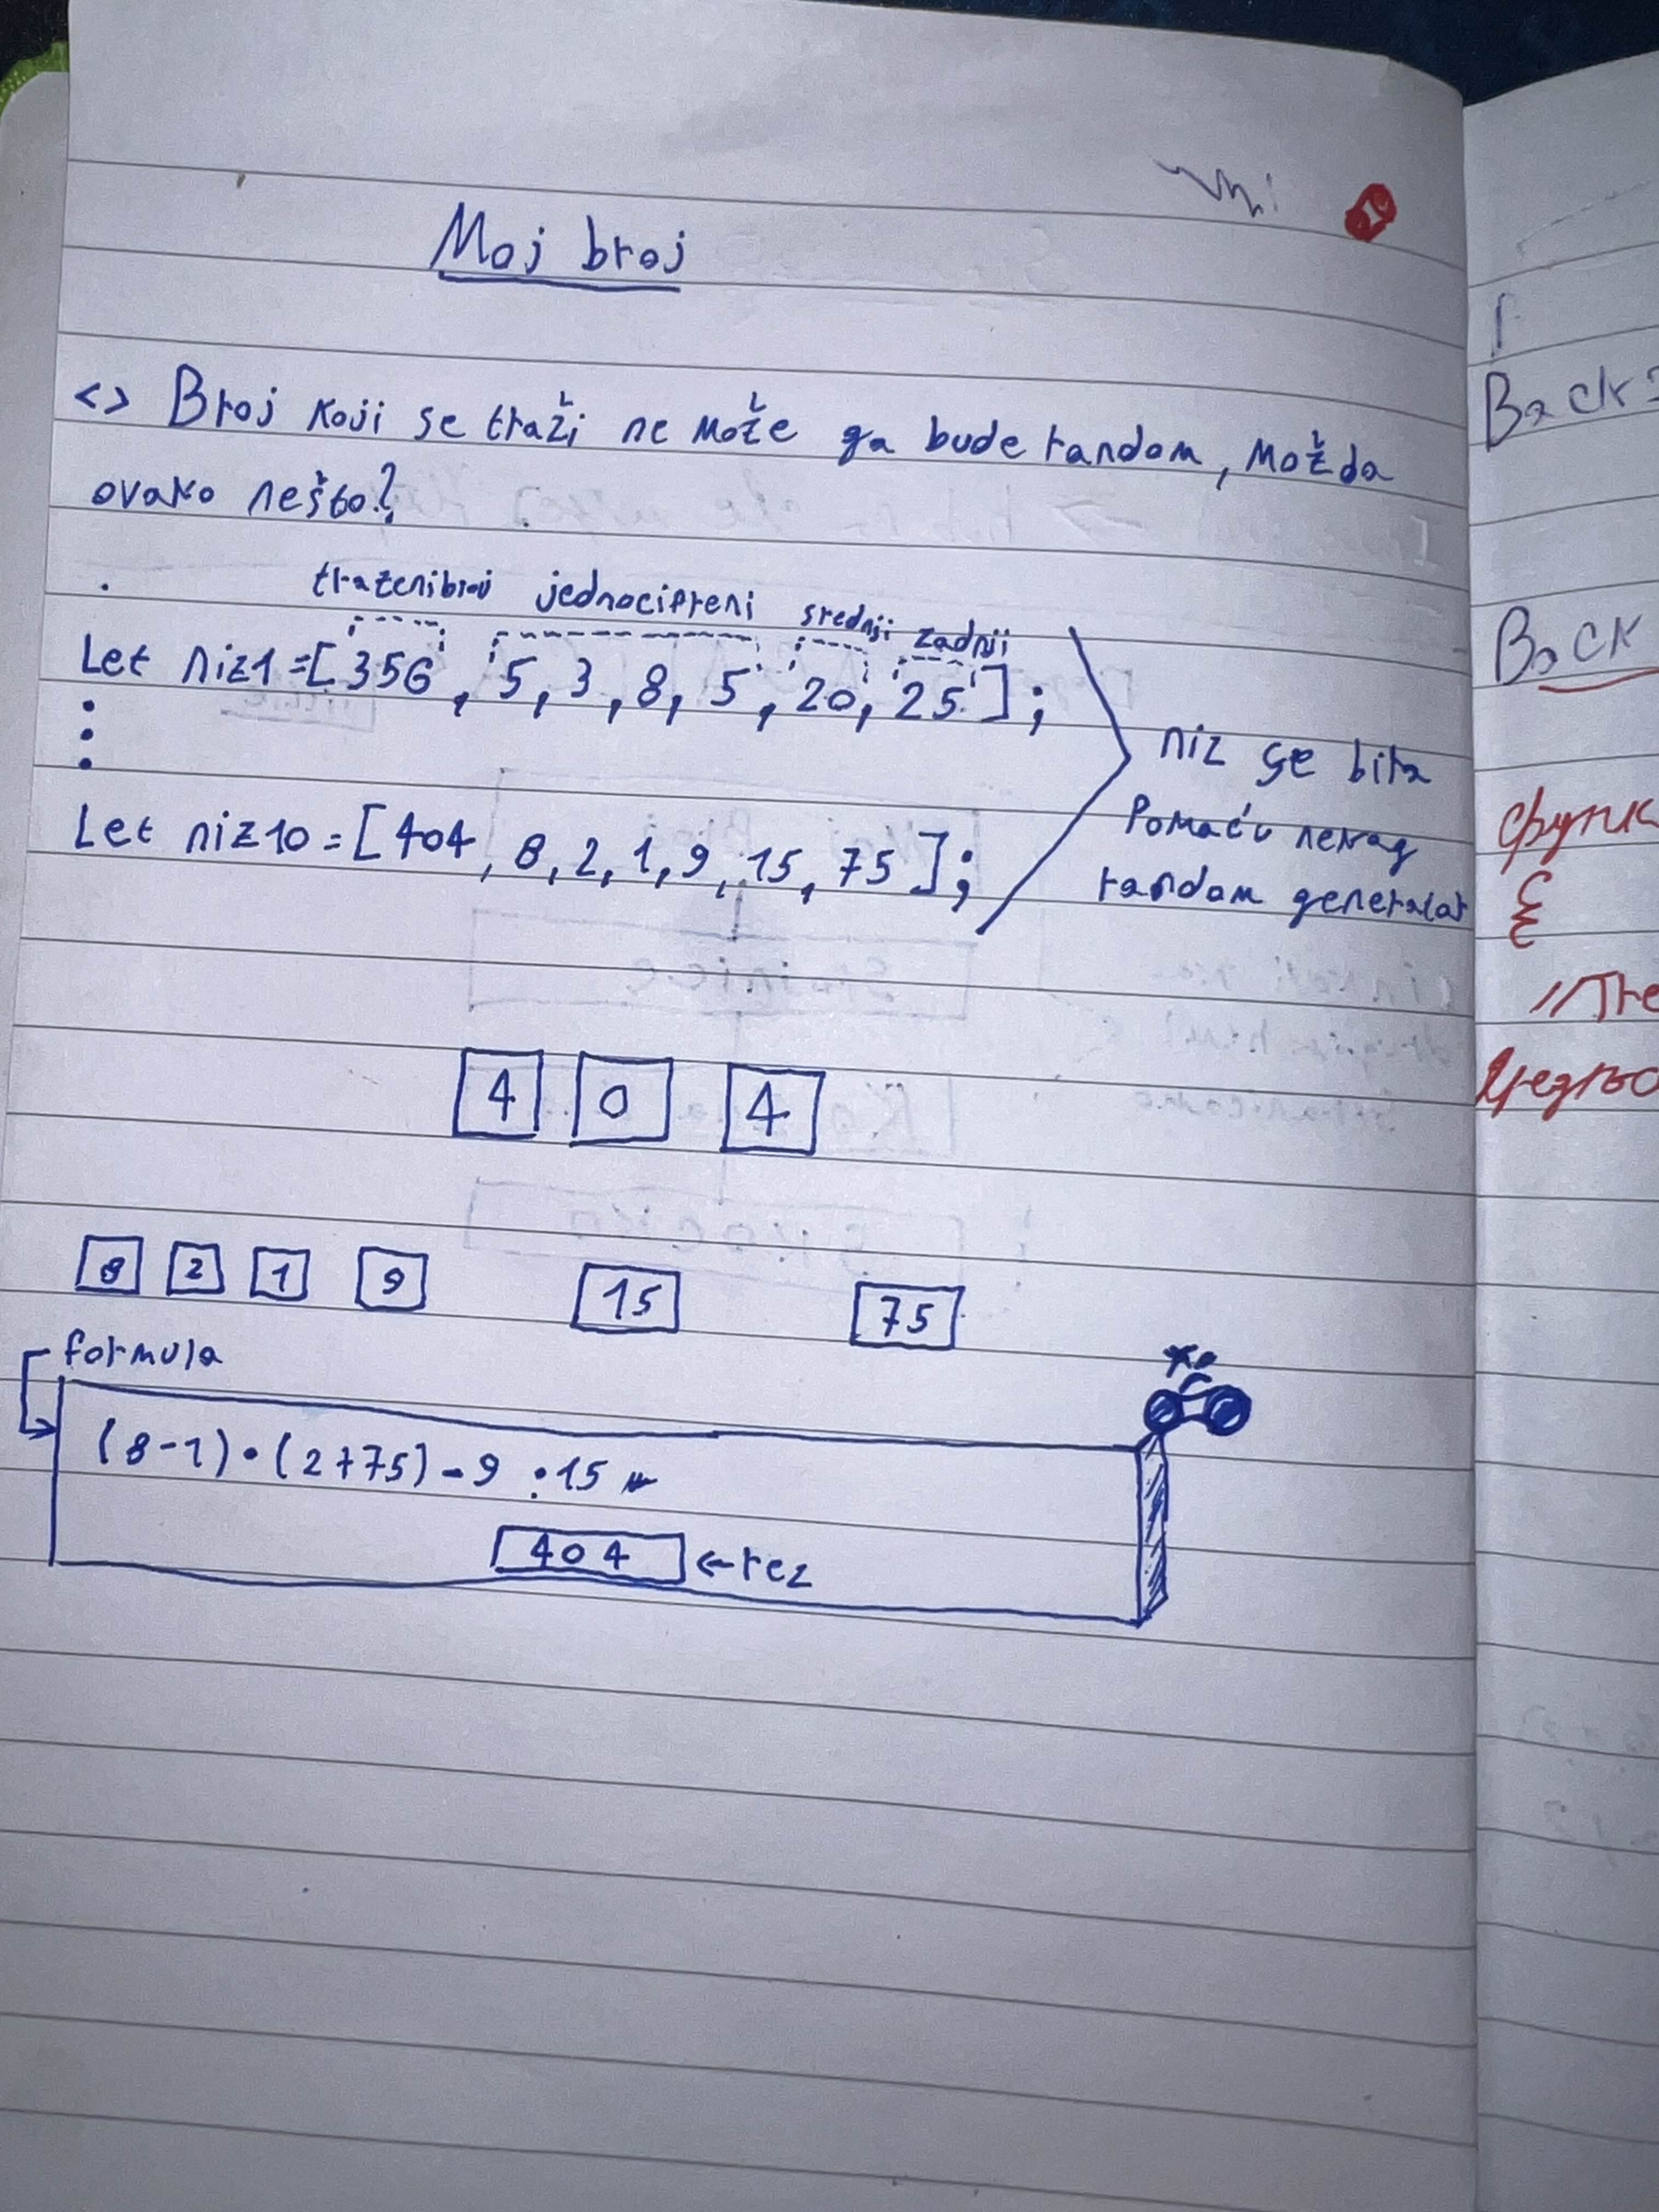 Moj broj
<> Broj koji se traži ne može ga bude random, možda
ovako nešto?
traženibroj jednocifreni srednji zadnji
Let niz1=[356, 5, 3, 8, 5, 20, 25];
niz se bira
Let niz10=[404, 8, 2, 1, 9, 15, 75];
Pomoću nekag
random generator
4 0 4
8 2 1 9 15 75
formula
(8-1)•(2+75)-9 :15
404 ←rez
Back
Back
функ
//Тre